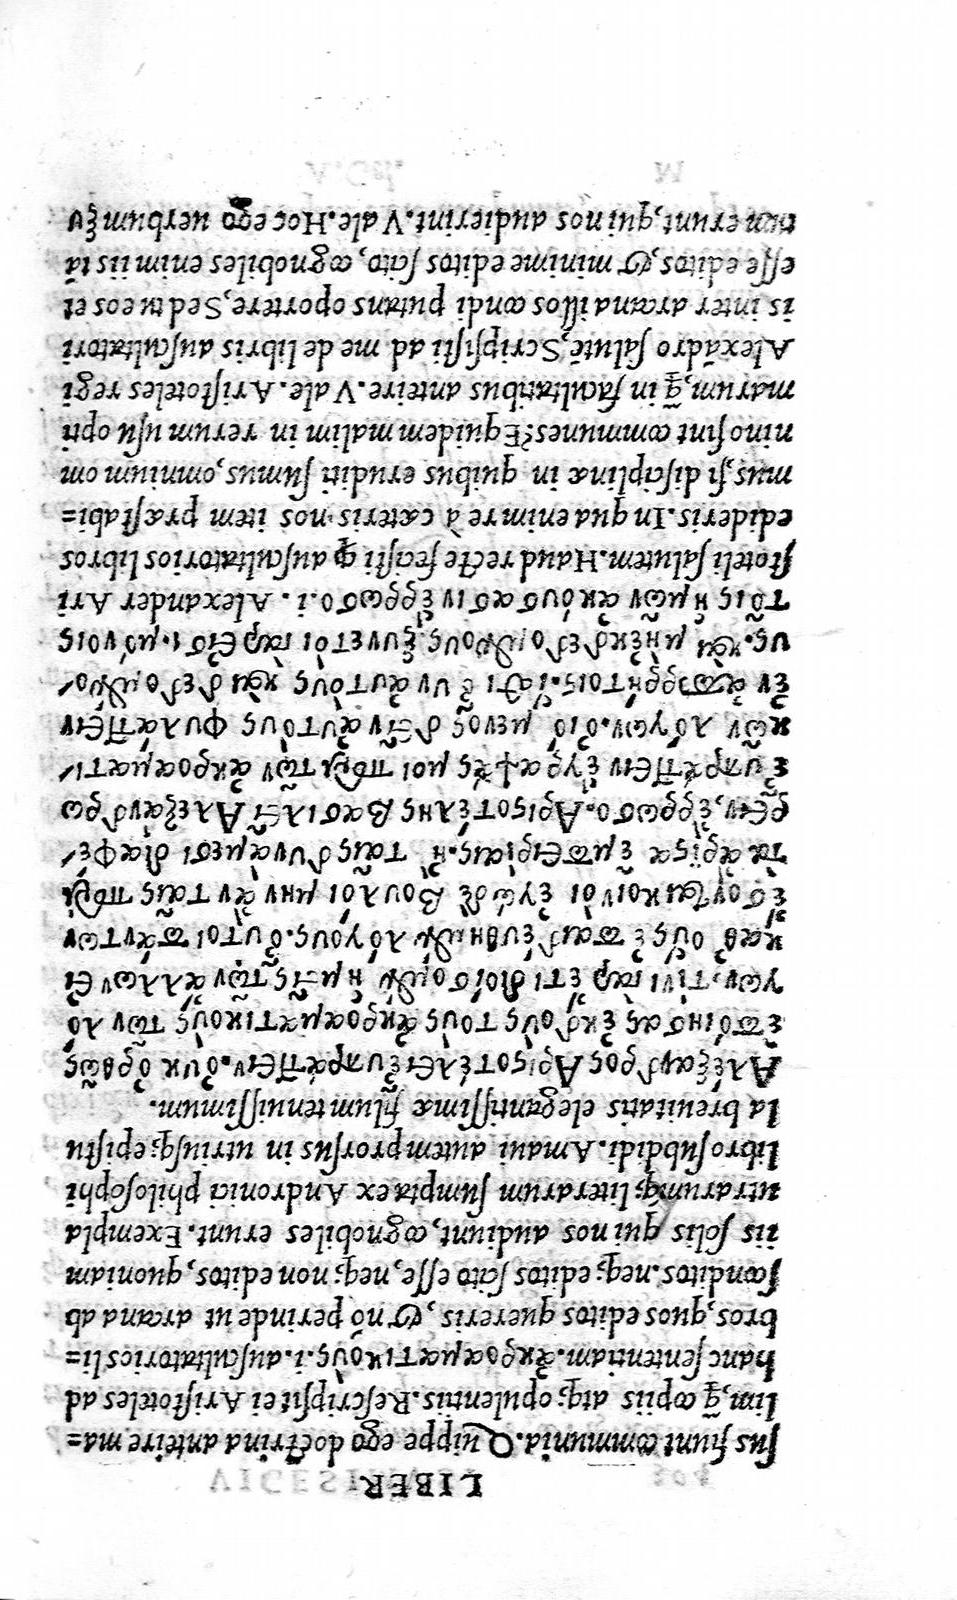 LIBER
sus fiunt cōmunia. Quippe ego doctrina anteire ma=
lim, q̄ cōpiis atq; opulentiis. Rescripsit ei Aristoteles ad
hanc sententiam. ἀκροαματικοὺς .i. auscultatorios li=
bros, quos editos quereris, & nō perinde ut arcana ab
scōnditos. neq; editos scito esse, neq; non editos, quoniam
iis solis qui nos audiunt, cognobiles erunt. Exempla
utrarumq; literarum sumpta ex Andronici philosophi
libro subdidi. Amaui autem prorsus in utriusq; epistu
la breuitatis elegantissimæ filum tenuissimum.
Αλέξανδρος Αριστοτέλει εὐπράττειν. ὀυκ ὀρθῶς
ἐποίησας ἐκδοὺς τοὺς ἀκροαματικοὺς τῶν λό
γων, τίνι γὰρ ἔτι διοίσομεν ἡμεῖς τῶν ἄλλων εἰ
καθ' οὓς ἐπαιδεύθημεν λόγους. ὁυτοι πάντων
ἔσονται κοινοὶ ἐγὼ δὲ βουλοίμην ἂν ταῖς περὶ
τὰ ἄριστα ἐμπειρίαις. ἢ ταῖς δυνάμεσι διαφέ/
ρειν, ἔρρωσο. Αριστοτέλης Βασιλεῖ Αλεξάνδρω
εὐπράττειν ἔγραψάς μοι περὶ τῶν ἀκροαματι/
κῶν λόγων. οἰόμενος δεῖν ἀυτοὺς φυλάττειν
ἐν ἀπορρήτοις. ἴσθι ὀυν ἀυτοὺς καὶ ἐκδεδομένο/
υς. καὶ μὴ ἐκδεδομένους ξυνετοὶ γάρ εἰσι. μόνοις
τοῖς ἡμῶν ἀκούσασιν ἔρρωσο .i. Alexander Ari
stoteli salutem. Haud recte fecisti q̃ auscultatorios libros
edideris. In qua enim re à cæteris nos item præstabi=
mus, si disciplinæ in quibus eruditi sumus, omnium om
nino sint communes? Equidem malim in rerum usu opti
marum, q̄ in facultatibus anteire. Vale. Aristoteles regi
Alexādro salutē, Scripsisti ad me de libris auscultatorii
is inter arcana illos condi putans oportere, Sed tu eos et
esse editos, & minime editos scito, cognobiles enim iis tā
tum erunt, qui nos audierint. Vale. Hoc ego uerbum ξυ